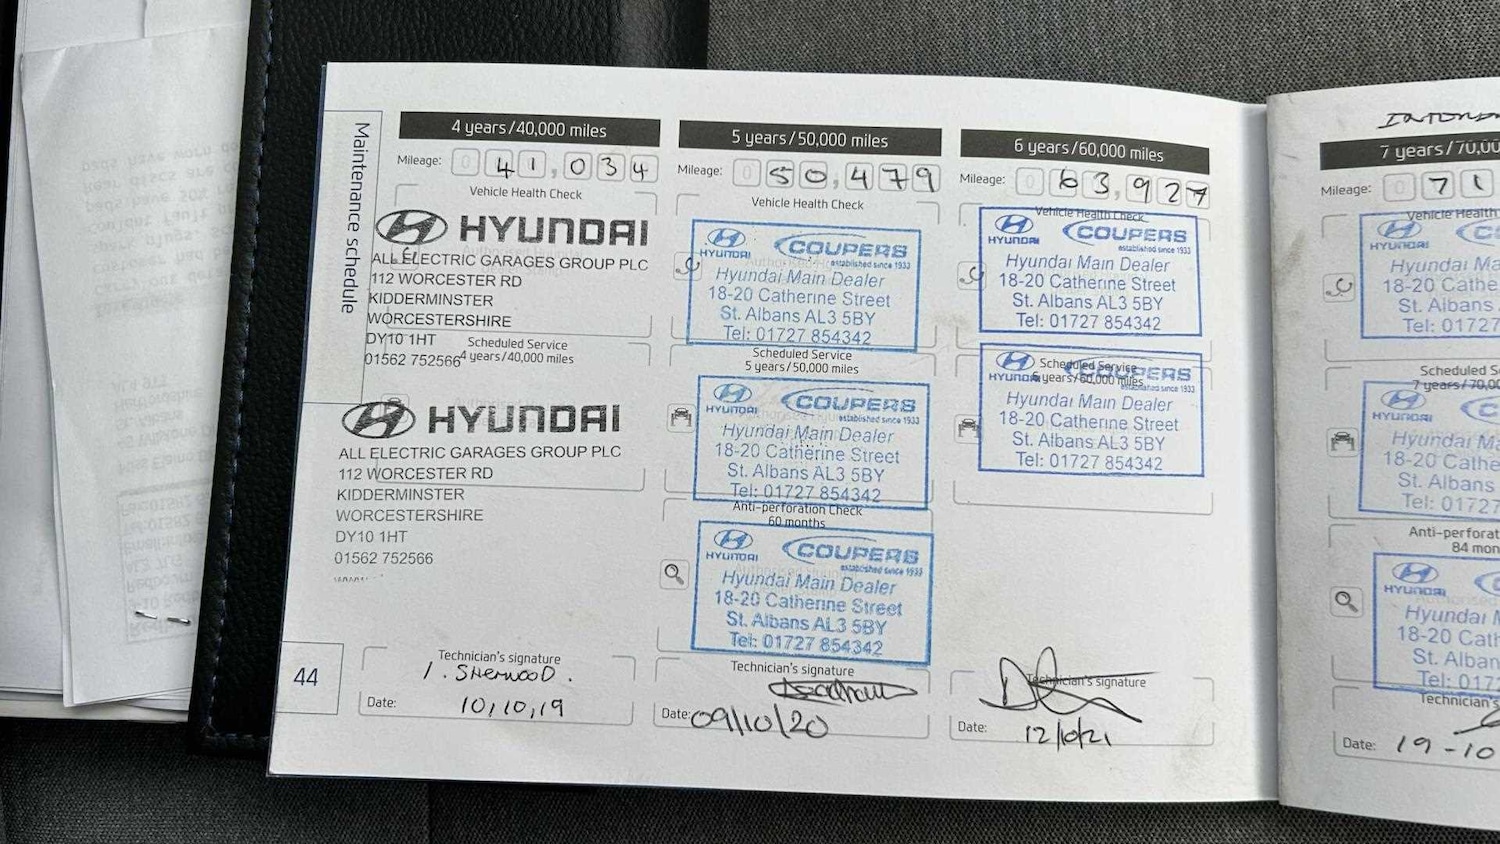 Maintenance schedule
44
4 years/40,000 miles
Mileage: 0 41,034
Vehicle Health Check
HYUNDAI
ALL ELECTRIC GARAGES GROUP PLC
112 WORCESTER RD
KIDDERMINSTER
WORCESTERSHIRE
DY10 1HT
01562 752566
Scheduled Service
4 years/40,000 miles
HYUNDAI
ALL ELECTRIC GARAGES GROUP PLC
112 WORCESTER RD
KIDDERMINSTER
WORCESTERSHIRE
DY10 1HT
01562 752566
Technician's signature
I. SHERWOOD.
Date: 10,10,19
5 years/50,000 miles
Mileage: 0 50,479
Vehicle Health Check
HYUNDAI COUPERS
established since 1933
Hyundai Main Dealer
18-20 Catherine Street
St. Albans AL3 5BY
Tel: 01727 854342
Scheduled Service
5 years/50,000 miles
HYUNDAI COUPERS
established since 1933
Hyundai Main Dealer
18-20 Catherine Street
St. Albans AL3 5BY
Tel: 01727 854342
Anti-perforation Check
60 months
HYUNDAI COUPERS
established since 1933
Hyundai Main Dealer
18-20 Catherine Street
St. Albans AL3 5BY
Tel: 01727 854342
Technician's signature
Date: 09/10/20
6 years/60,000 miles
Mileage: 0 63,927
Vehicle Health Check
HYUNDAI COUPERS
established since 1933
Hyundai Main Dealer
18-20 Catherine Street
St. Albans AL3 5BY
Tel: 01727 854342
Scheduled Service
6 years/60,000 miles
HYUNDAI COUPERS
established since 1933
Hyundai Main Dealer
18-20 Catherine Street
St. Albans AL3 5BY
Tel: 01727 854342
Technician's signature
Date: 12/10/21
7 years/70,00
Mileage: 0 71
Vehicle Health
HYUNDAI
Hyundai Ma
18-20 Cathe
St. Albans
Tel: 01727
Scheduled S
7 years/70,00
HYUNDAI
Hyundai M
18-20 Cathe
St. Alban
Tel: 0172
Anti-perforat
84 mon
HYUNDAI
Hyundai M
18-20 Cath
St. Alban
Tel: 0172
Technician's
Date: 19-10